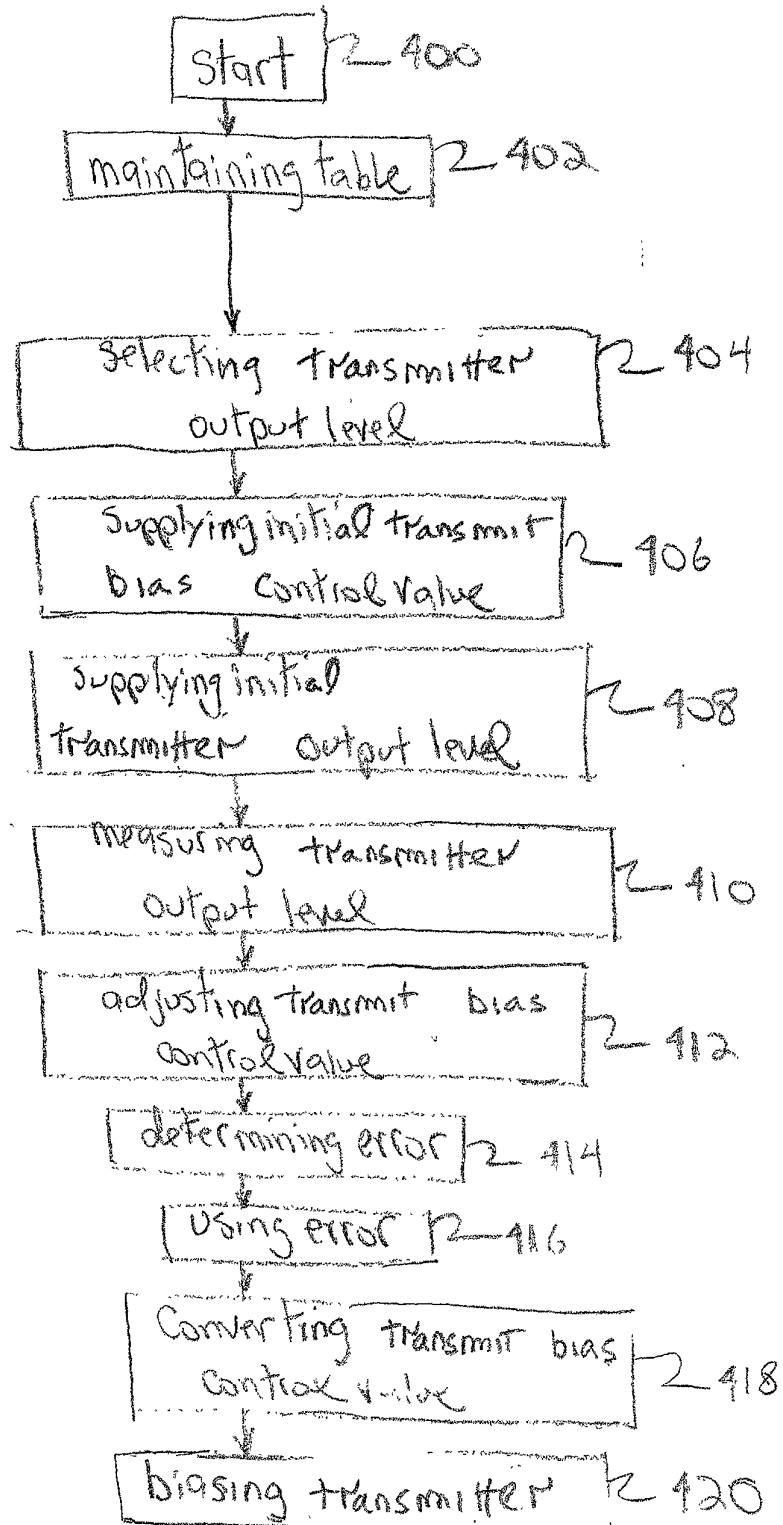 Start 400
maintaining table 402
Selecting transmitter 404
output level
Supplying initial transmit
bias control value 406
supplying initial
transmitter output level 408
measuring transmitter
output level 410
adjusting transmit bias
control value 412
determining error 414
using error 416
Converting transmit bias
control value 418
biasing transmitter 420